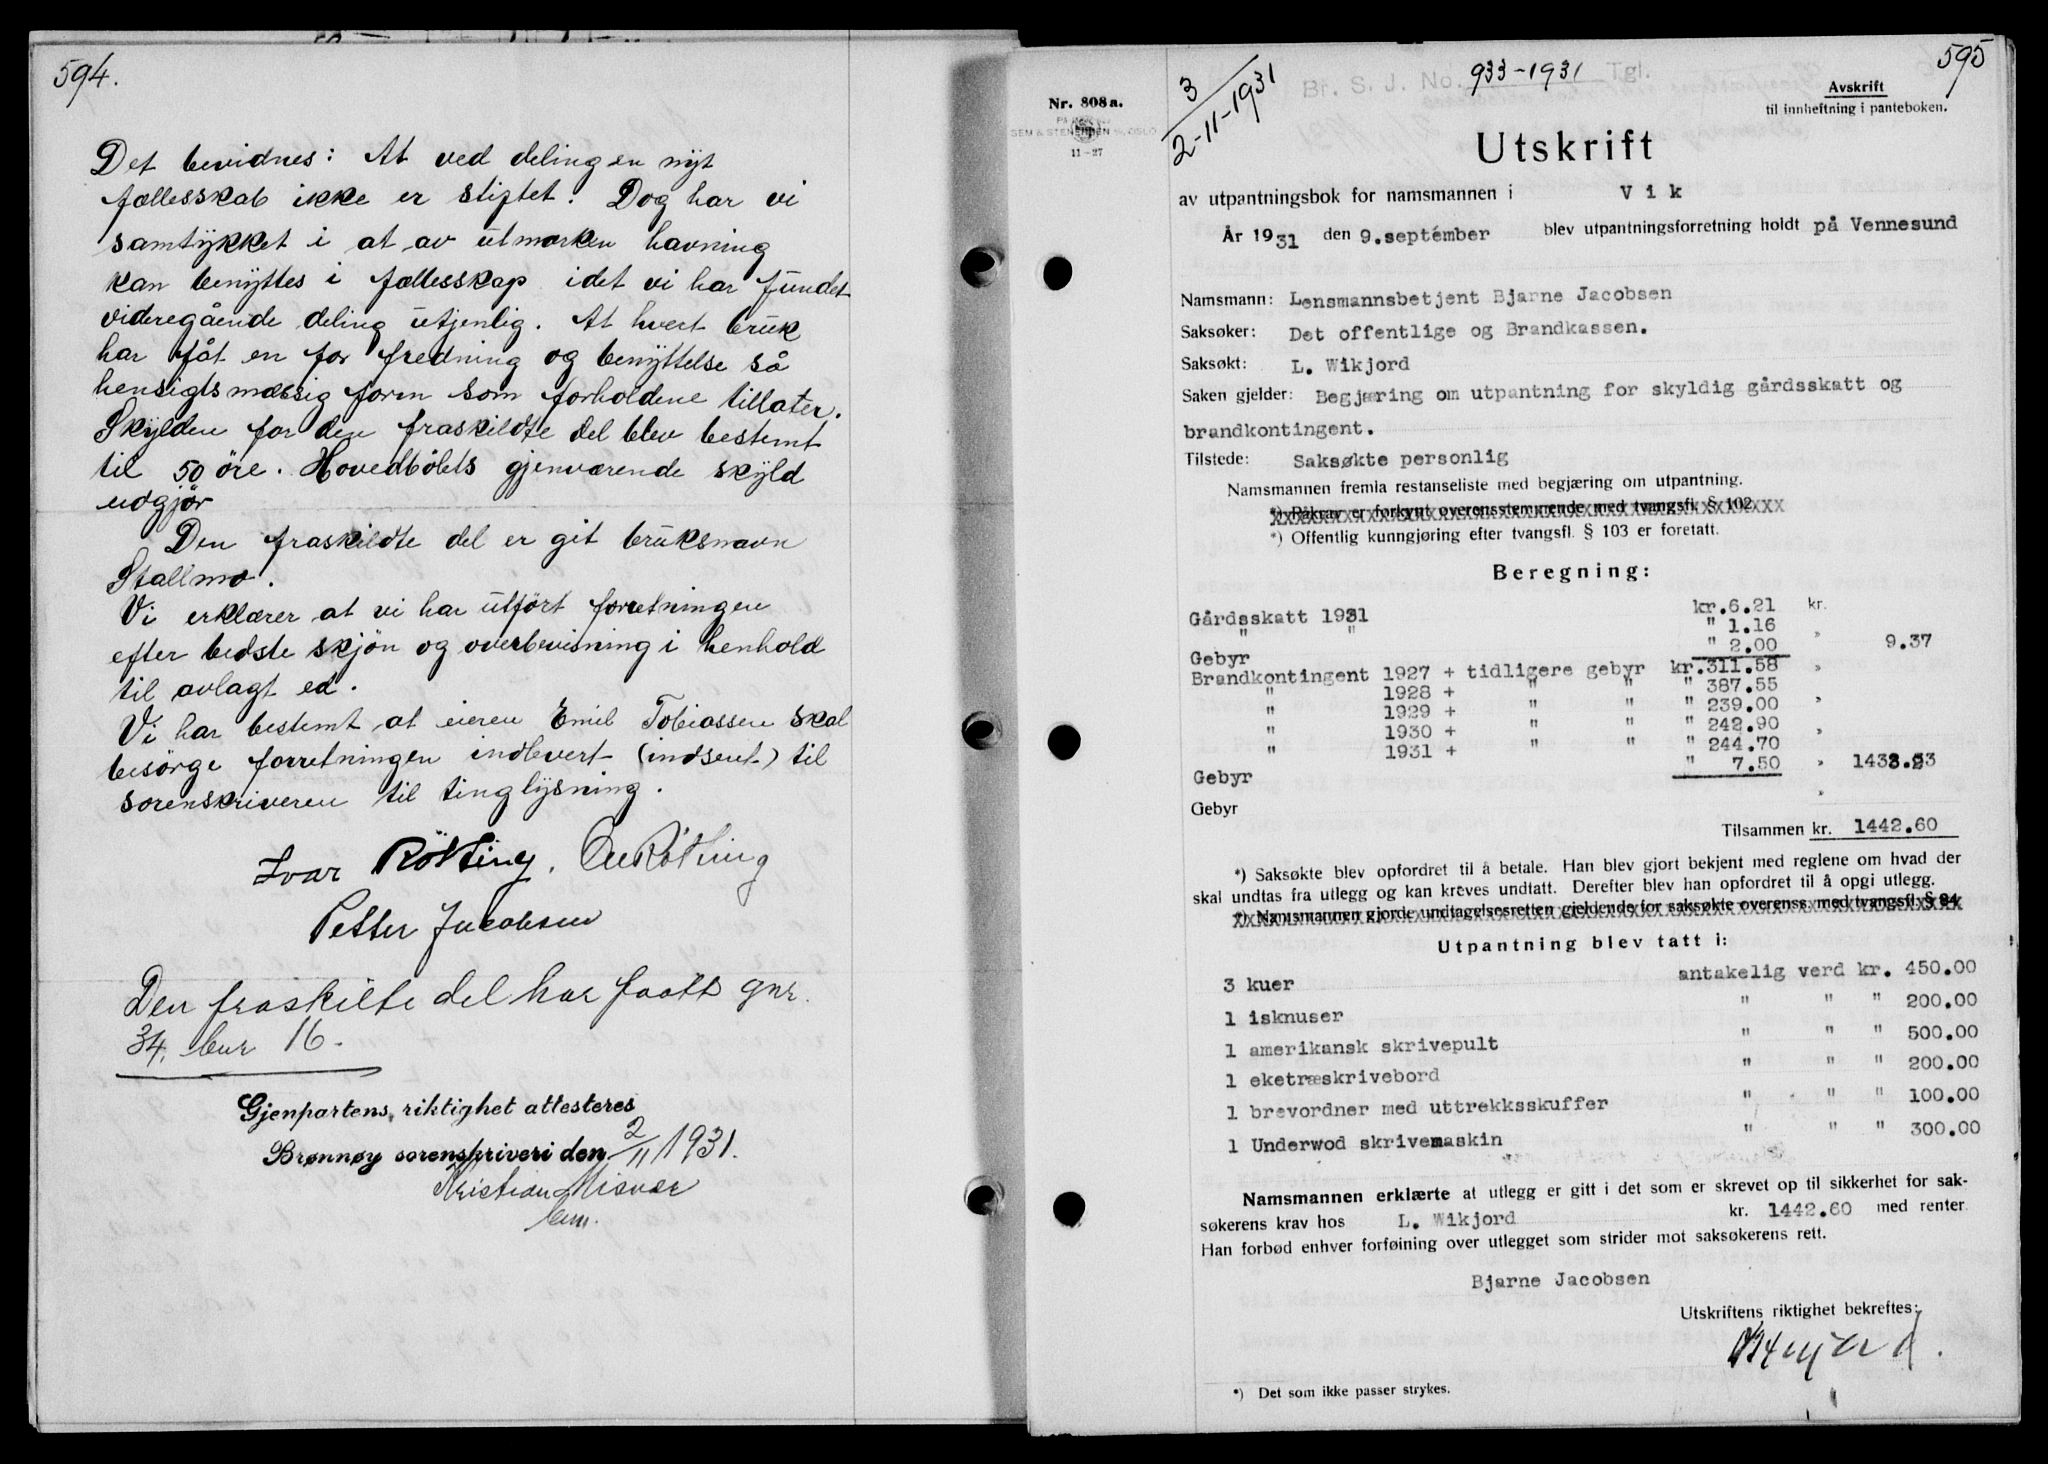 594.
Det bevidnes: At ved delingen nyt
fællesskab ikke er stiftet. Dog har vi
samtykket i at av utmarken havning
kan benyttes i fællesskap idet vi har fundet
videregående deling utjenlig. At hvert bruk
har fåt en for fredning og benyttelse så
hensigtsmæssig form som forholdene tillater.
Skylden for den fraskildte del blev bestemt
til 50 öre. Hovedbölets gjenværende skyld
udgjör
Den fraskildte del er git bruksnavn
Stallmo.
Vi erklærer at vi har utfört forretningen
efter bedste skjön og overbevisning i henhold
til avlagt ed.
Vi har bestemt at eieren Emil Tobiassen skal
besörge forretningen indlevert (indsent) til
sorenskriveren til tinglysning.
Ivar Rötting. Ole Rötting
Petter Jacobsen
Den fraskilte del har faatt gnr.
34, bnr 16.
Gjenpartens riktighet attesteres
Brønnøy sorenskriveri den 2/11 1931.
Kristian
595
3
2-11-1931
Br. S. J. No. 933-1931 Tgl.
Nr. 808a.
SEM & STENERSEN OSLO
11-27
Avskrift
til innheftning i panteboken.
Utskrift
av utpantningsbok for namsmannen i Vik
År 1931 den 9.septémber blev utpantningsforretning holdt på Vennesund
Namsmann: Lensmannsbetjent Bjarne Jacobsen
Saksøker: Det offentlige og Brandkassen.
Saksøkt: L. Wikjord
Saken gjelder: Begjæring om utpantning for skyldig gårdsskatt og
brandkontingent.
Tilstede: Saksøkte personlig
Namsmannen fremla restanseliste med begjæring om utpantning.
*) Påkrav er forkynt overensstemmende med tvangsfl. § 102.
*) Offentlig kunngjøring efter tvangsfl. § 103 er foretatt.
Beregning:
Gårdsskatt 1931 kr.6.21 kr.
" " " 1.16
Gebyr " 2.00 " 9.37
Brandkontingent 1927 + tidligere gebyr kr.311.58 "
" 1928 + " " " 387.55
" 1929 + " " " 239.00 "
" 1930 + " " " 242.90 "
" 1931 + " " " 244.70
Gebyr " 7.50 " 1433.23
Gebyr "
Tilsammen kr. 1442.60
*) Saksøkte blev opfordret til å betale. Han blev gjort bekjent med reglene om hvad der
skal undtas fra utlegg og kan kreves undtatt. Derefter blev han opfordret til å opgi utlegg.
*) Namsmannen gjorde undtagelsesretten gjeldende for saksøkte overenss. med tvangsfl. § 84
Utpantning blev tatt i:
3 kuer antakelig verd kr. 450.00
1 isknuser " " " 200.00
1 amerikansk skrivepult " " " 500.00
1 eketræskrivebord " " " 200.00
1 brevordner med uttrekksskuffer " " " 100.00
1 Underwod skrivemaskin " " " 300.00
Namsmannen erklærte at utlegg er gitt i det som er skrevet op til sikkerhet for sak-
søkerens krav hos L. Wikjord kr. 1442.60 med renter
Han forbød enhver forføining over utlegget som strider mot saksøkerens rett.
Bjarne Jacobsen
Utskriftens riktighet bekreftes:
*) Det som ikke passer strykes.